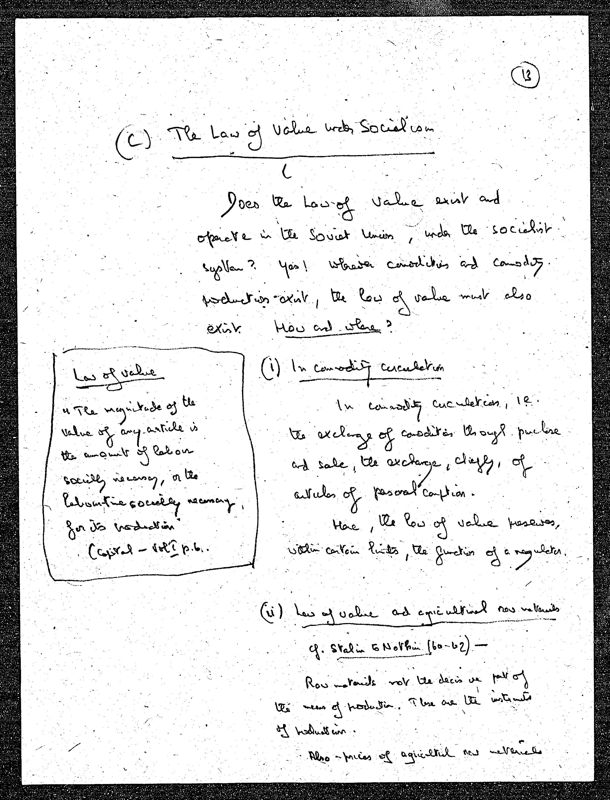 13
(C) The Law of Value under Socialism
Does the Law of Value exist and
operate in the Soviet Union, under the socialist
system? Yes! Wherever commodities and commodity
production exist, the law of value must also
exist. How and where?
(i) In commodity circulation
In commodity circulation, i.e.
the exchange of commodities through purchase
and sale, the exchange, chiefly, of
articles of personal consumption.
Here, the law of value preserves,
within certain limits, the function of a regulator.
Law of Value
"The magnitude of the
value of any article is
the amount of labour
socially necessary, or the
labour time socially necessary,
for its production"
(Capital - Vol I p.6..
(ii) Law of value and agricultural raw materials
cf. Stalin to Notkin (60-62) —
Raw materials not the decisive part of
the means of production. These are the instruments
of production.
Also - prices of agricultural raw materials